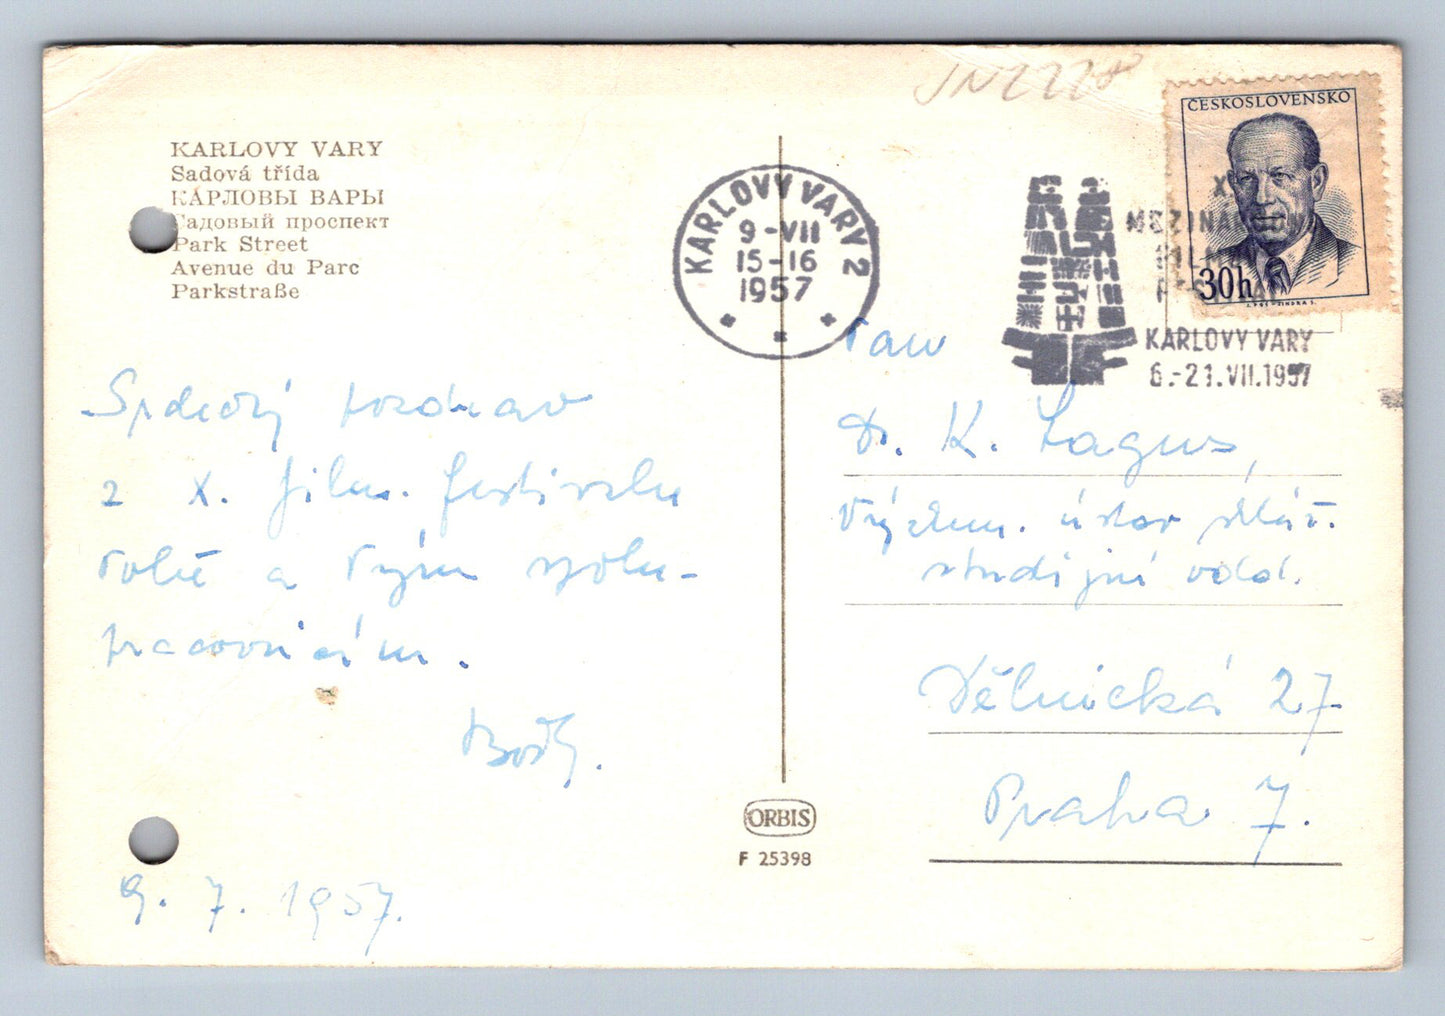 KARLOVY VARY
Sadová třída
КАРЛОВЫ ВАРЫ
Садовый проспект
Park Street
Avenue du Parc
Parkstraße
Srdečný pozdrav
z X. film. festivalu
Tobě a Tvým spolu-
pracovníkům.
9. 7. 1957.
ORBIS
F 25398
KARLOVY VARY 2
9-VII
15-16
1957
X.
MEZINÁRODNÍ
FILMOVÝ
FESTIVAL
KARLOVY VARY
6.-21.VII.1957
ČESKOSLOVENSKO
30h
Pan
Dr. K. Lagus,
Výzkum. ústav sklář.
studijní odd.
Dělnická 27
Praha 7.